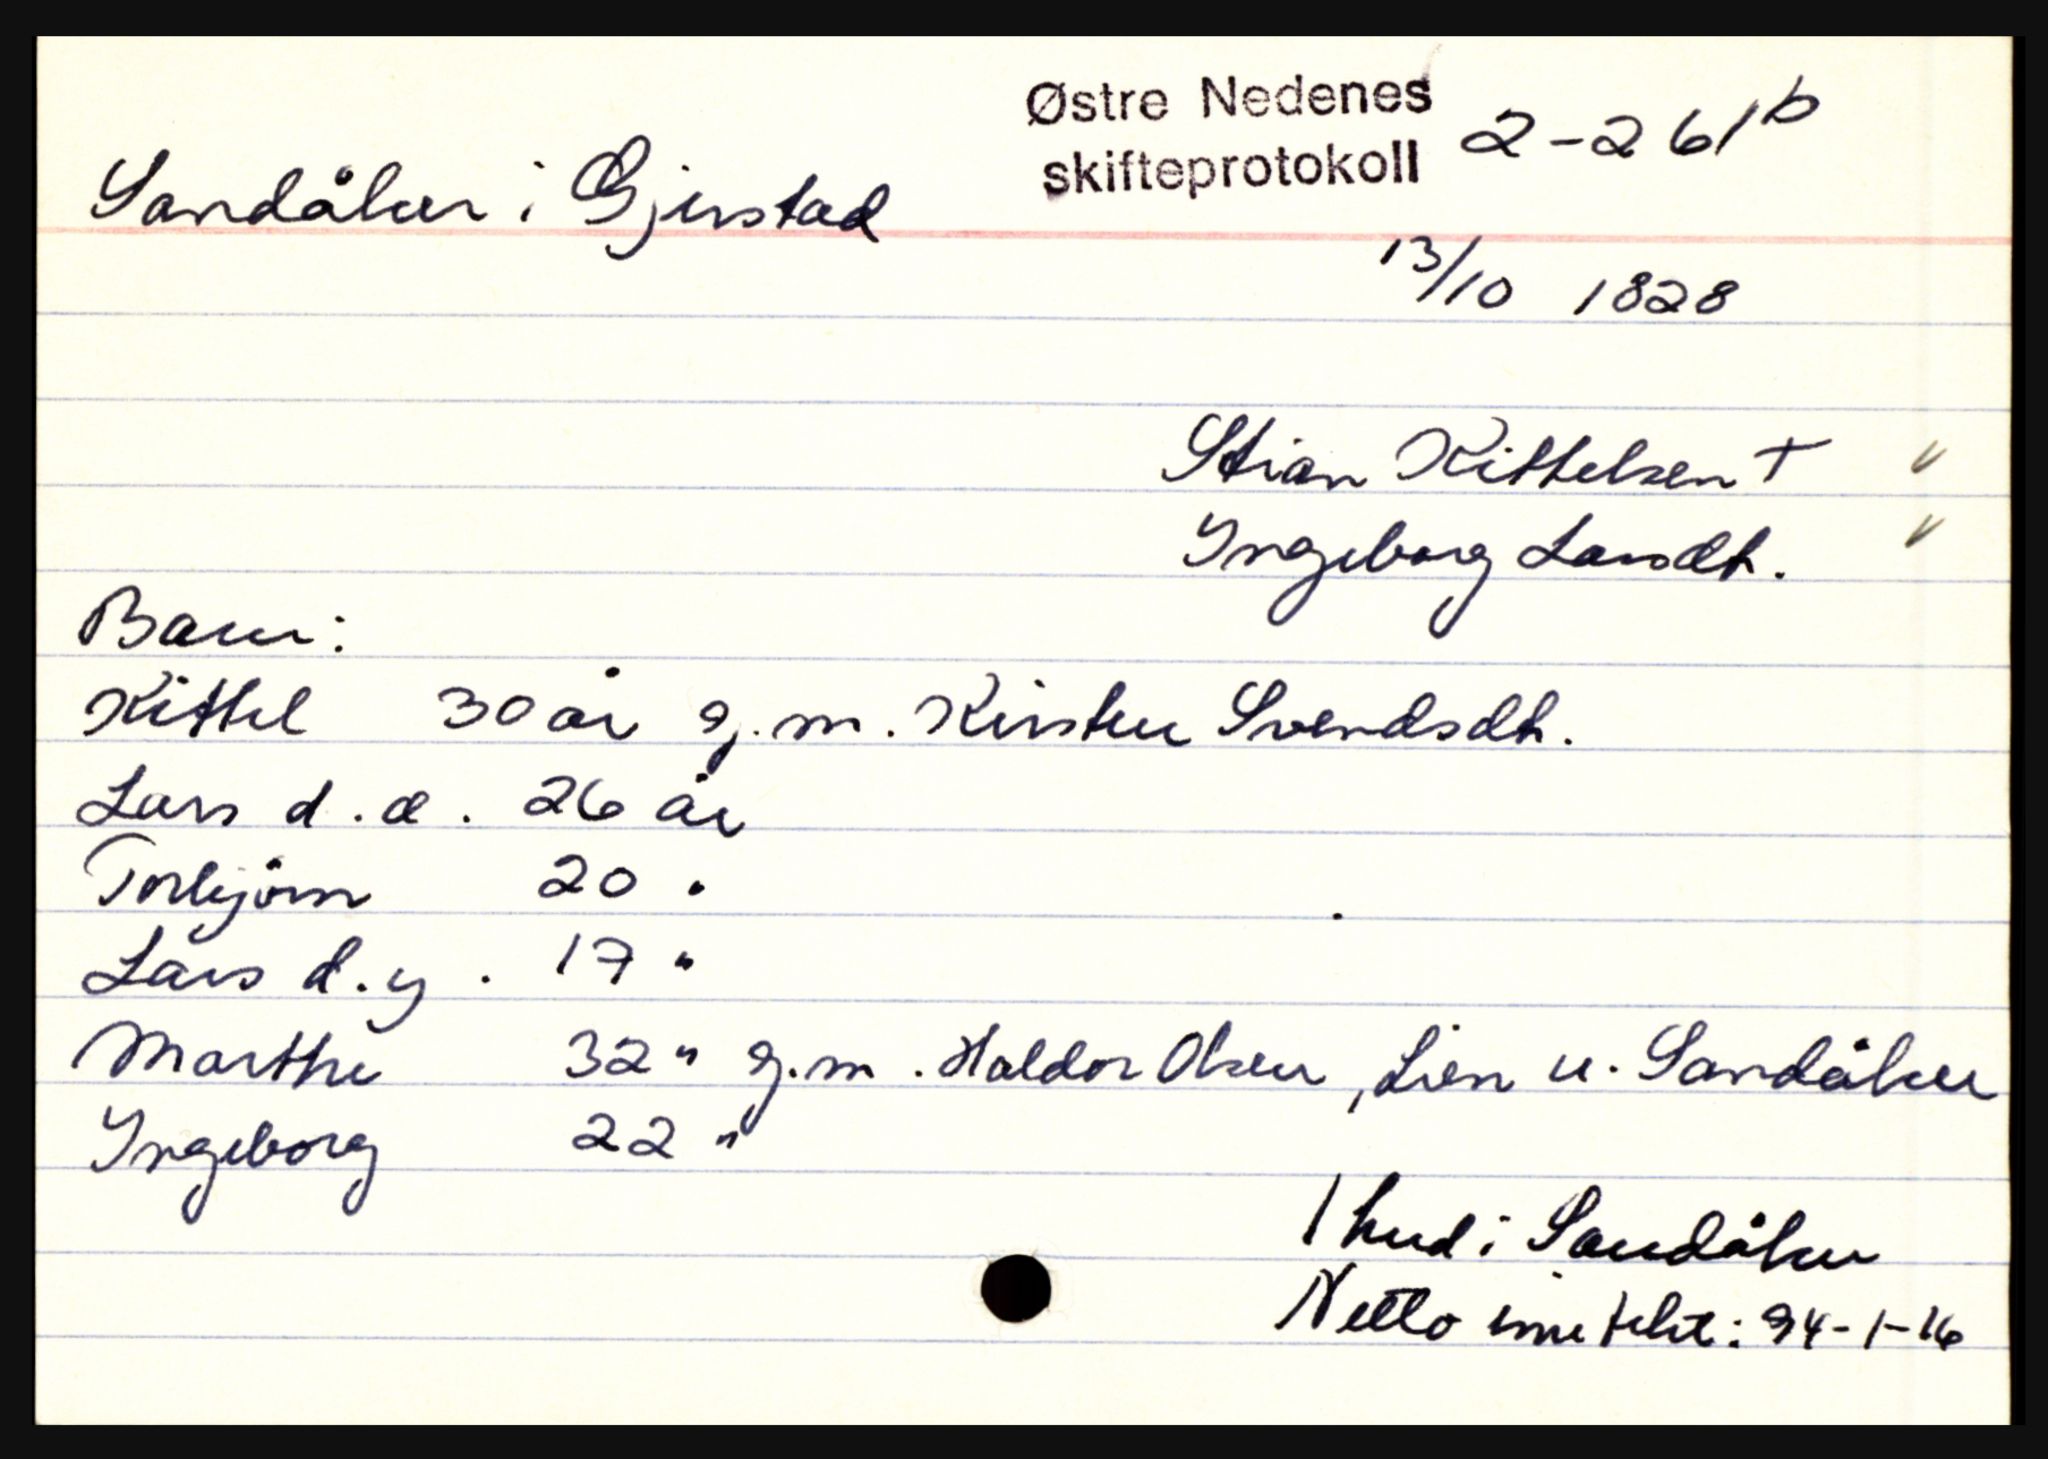 Østre Nedenes
skifteprotokoll 2-261b
Sandåker i Gjerstad
13/10 1828
Stian Kittelsen †
Ingeborg Larsdt.
Barn:
Kittel 30 år g.m. Kirsten Svendsdt.
Lars d.æ. 26 år
Torbjörn 20 "
Lars d.y. 17 "
Marthe 32 " g.m. Haldor Olsen, Lien u. Sandåker
Ingeborg 22 "
1 hud i Sandåker
Netto : 94-1-16